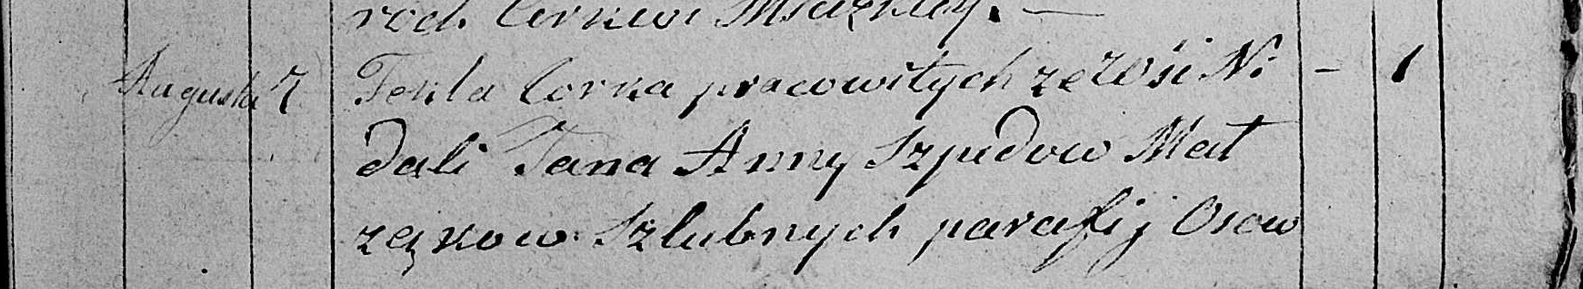 rod. Cerkwi Mścizkiey. —
Augusta 7 Tekla Corka pracowitych ze Wsi Ni – 1
dali Jana Anny Szpedow Mał
żąkow Szlubnych parafij Osow